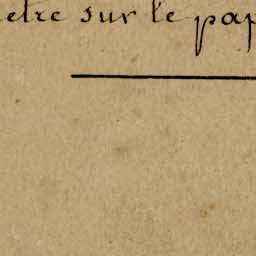 etre sur le pap